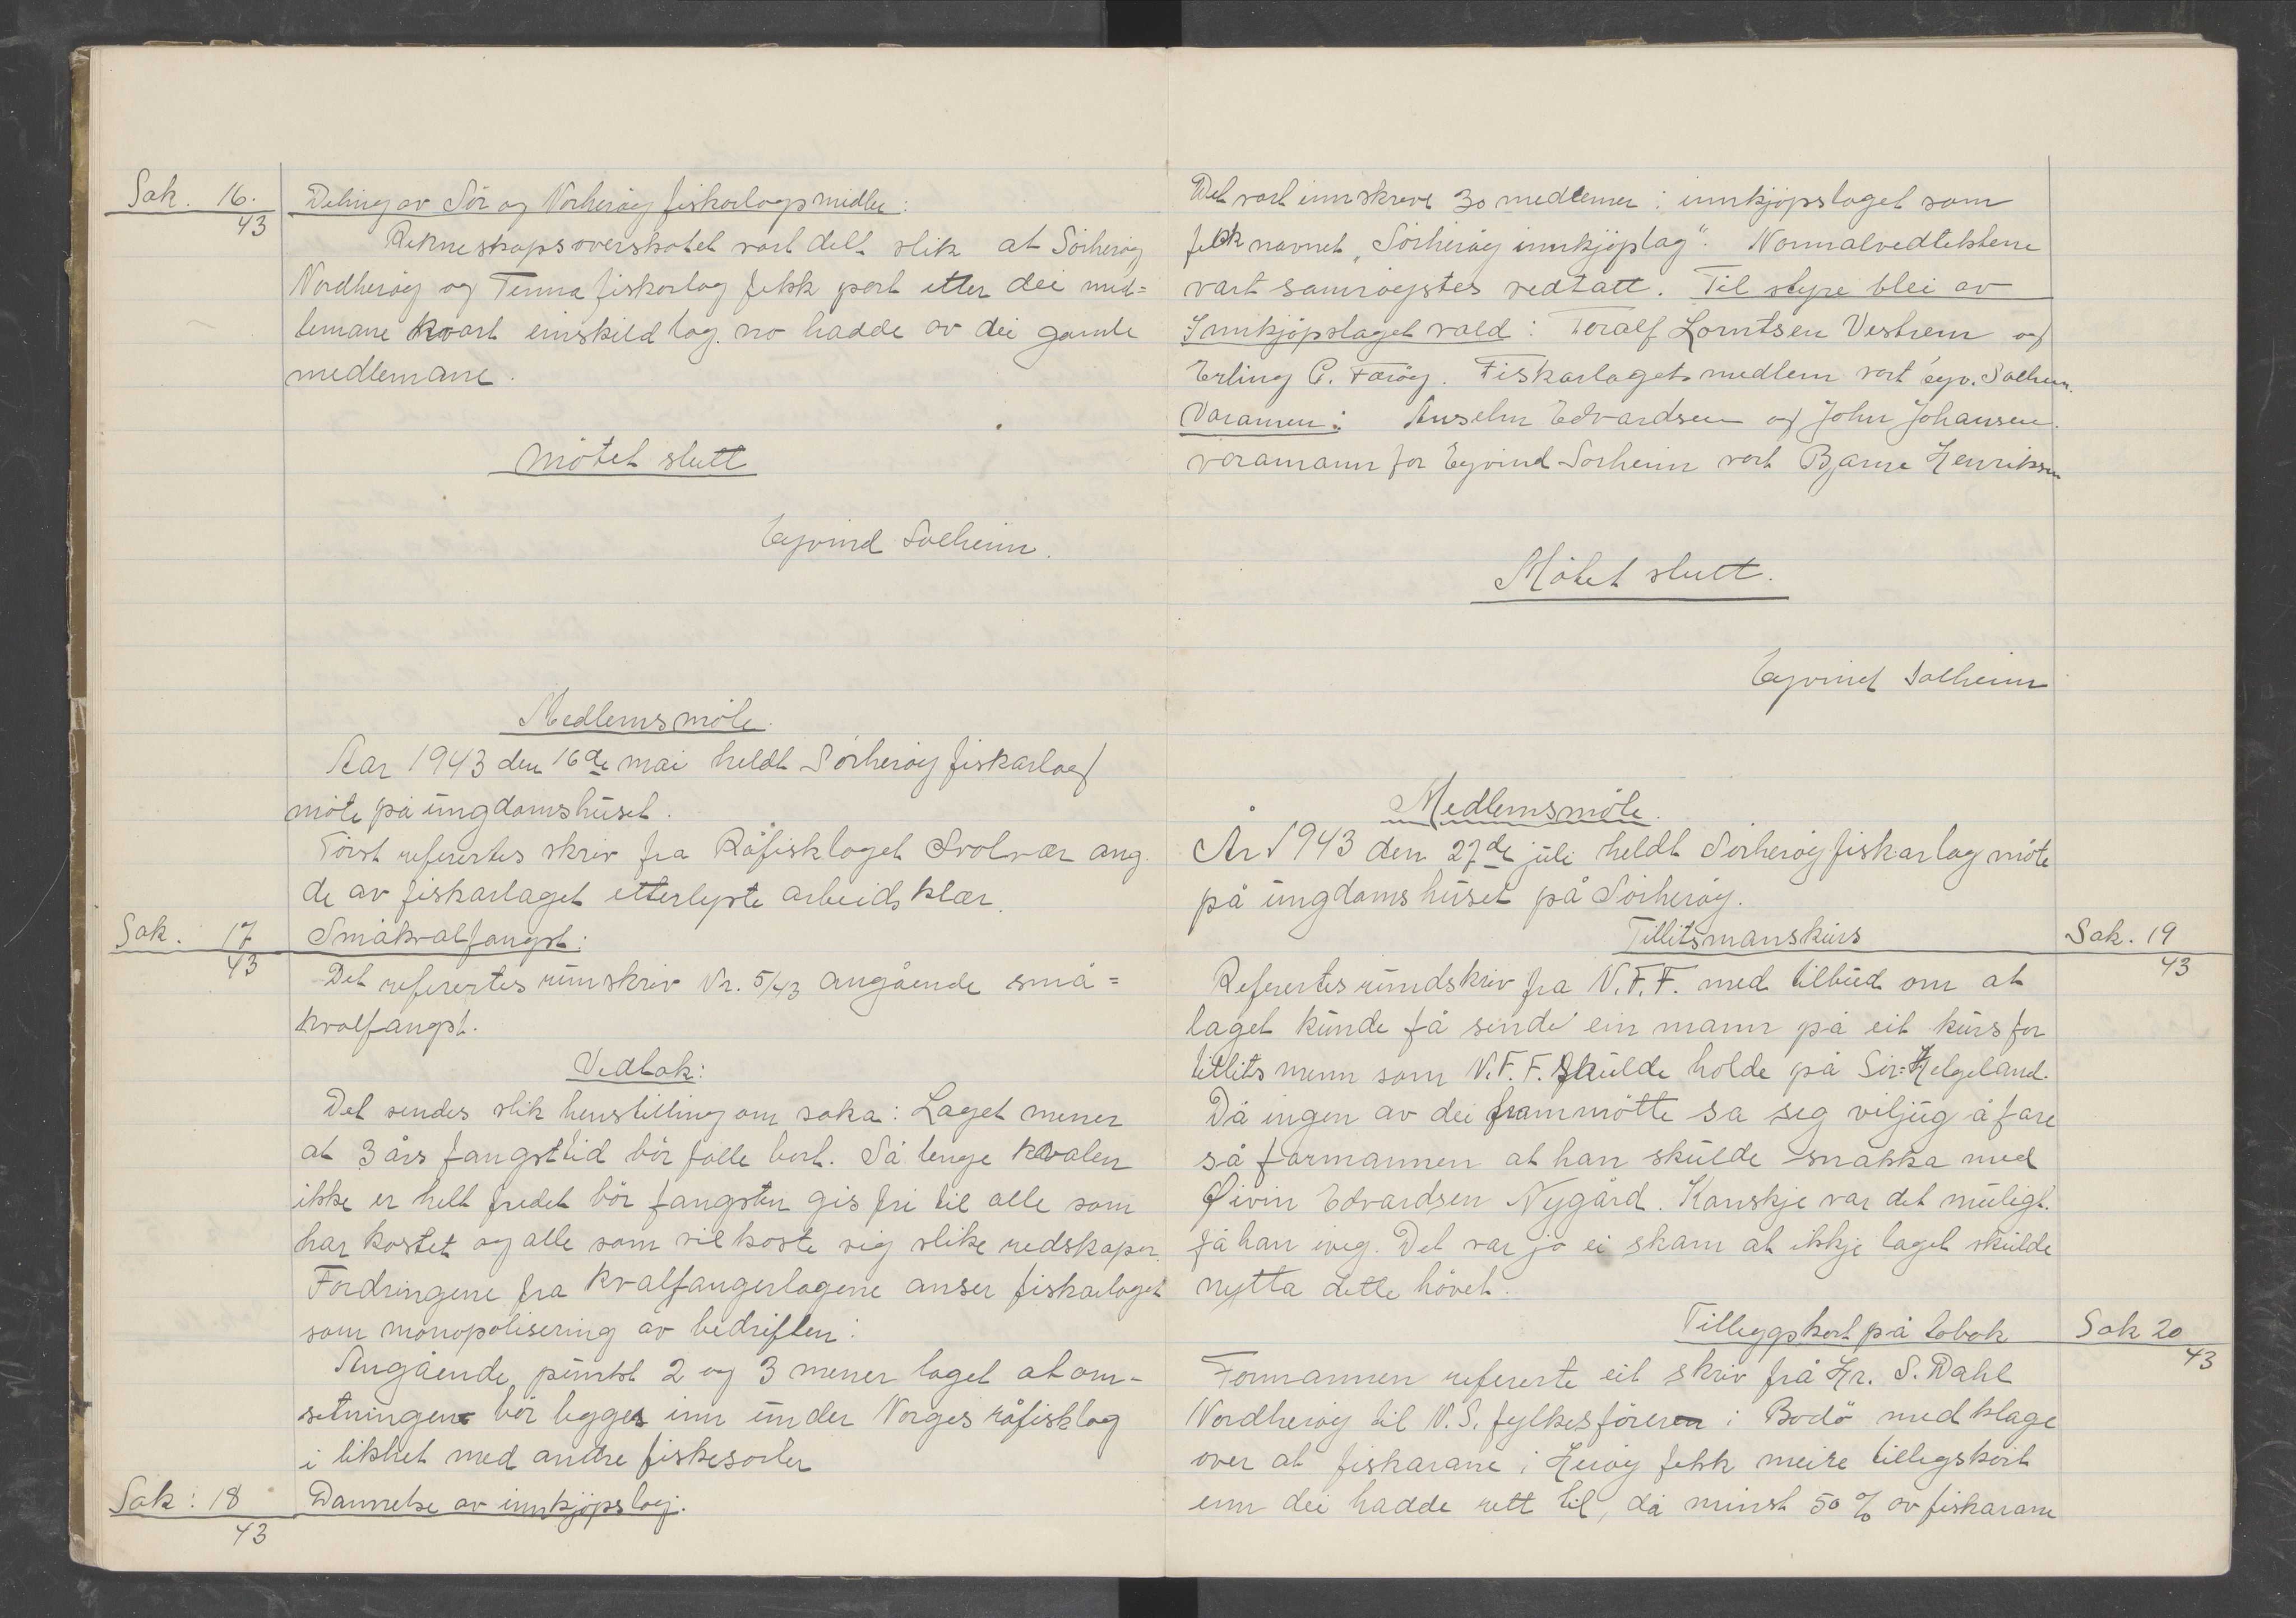 Sak. 16.
43
Deling av Sör og Norheröy fiskarlagsmidler:
Rekneskapsoverskotet vart delt slik at Sörheröy
Nordheröy og Tenna fiskarlag fekk part etter dei med=
lemane kvart einskild lag no hadde av dei gamle
medlemane.
Mötet slutt
Eyvind Solheim.
Medlemsmöte.
Aar 1943 den 16de mai heldt Sörheröy fiskarlag
möte på ungdomshuset.
Först referertes skriv fra Råfisklaget Svolvær ang.
de av fiskarlaget etterlyste arbeidsklær.
Sak. 17
43
Småkvalfangst:
Det referertes runskriv Nr. 5/43 angående små=
kvalfangst.
Vedtak:
Det sendes slik henstilling om saka: Laget mener
at 3 års fangsttid bör falle bort. Så lenge kvalen
ikke er helt fredet bör fangsten gis fri til alle som
har kostet og alle som vil koste sig slike redskaper.
Fordringene fra kvalfangerlagene anser fiskarlaget
som monopolisering av bedriften.
Angående punkt 2 og 3 mener laget at om-
setningen bör legges inn under Norges råfisklag
i likhet med andre fiskesorter
Sak: 18
43
Dannelse av innkjöpslag.
Det vart innskreve 30 medlemer i innkjöpslaget som
fekk navnet „Sörheröy innkjöplag". Normalvedtektene
vart samröystes vedtatt. Til styre blei av
Innkjöpslaget vald: Toralf Lorntsen Vestrem og
Erling C. Færöy. Fiskarlagets medlem vart eyv. Solheim.
Varamen: Anselm Edvardsen og John Johansen.
varamann for Eyvind Solheim vart Bjarne Henriksen
Mötet slutt.
Eyvind Solheim
Medlemsmöte.
År 1943 den 27de juli heldt Sörheröy fiskarlag möte
på ungdomshuset på Sörheröy.
Tillitsmanskurs
Sak. 19
43
Referertes rundskriv fra N.F.F. med tilbud om at
laget kunde få sende ein mann på eit kurs for
tillitsmenn som N.F.F. skulde holde på Sör=Helgeland.
Då ingen av dei frammötte sa seg viljug å fare
så formannen at han skulde snakka med
Øivin Edvardsen Nygård. Kanskje var det muligt.
få han iveg. Det var jo ei skam at ikkje laget skulde
nytta dette hövet.
Tilleggskort på tobak
Sak 20
43
Formannen refererte eit skriv frå Hr. S. Dahl
Nordheröy til N.S. fylkesförer i Bodö med klage
over at fiskarane i Heröy fekk meire tillegskort
enn dei hadde rett til, då minst 50 % av fiskarane